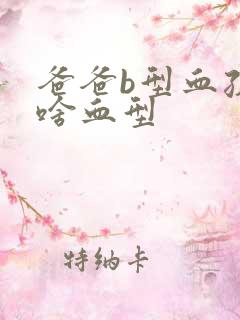 爸爸b型血孩
啥血型
特纳卡